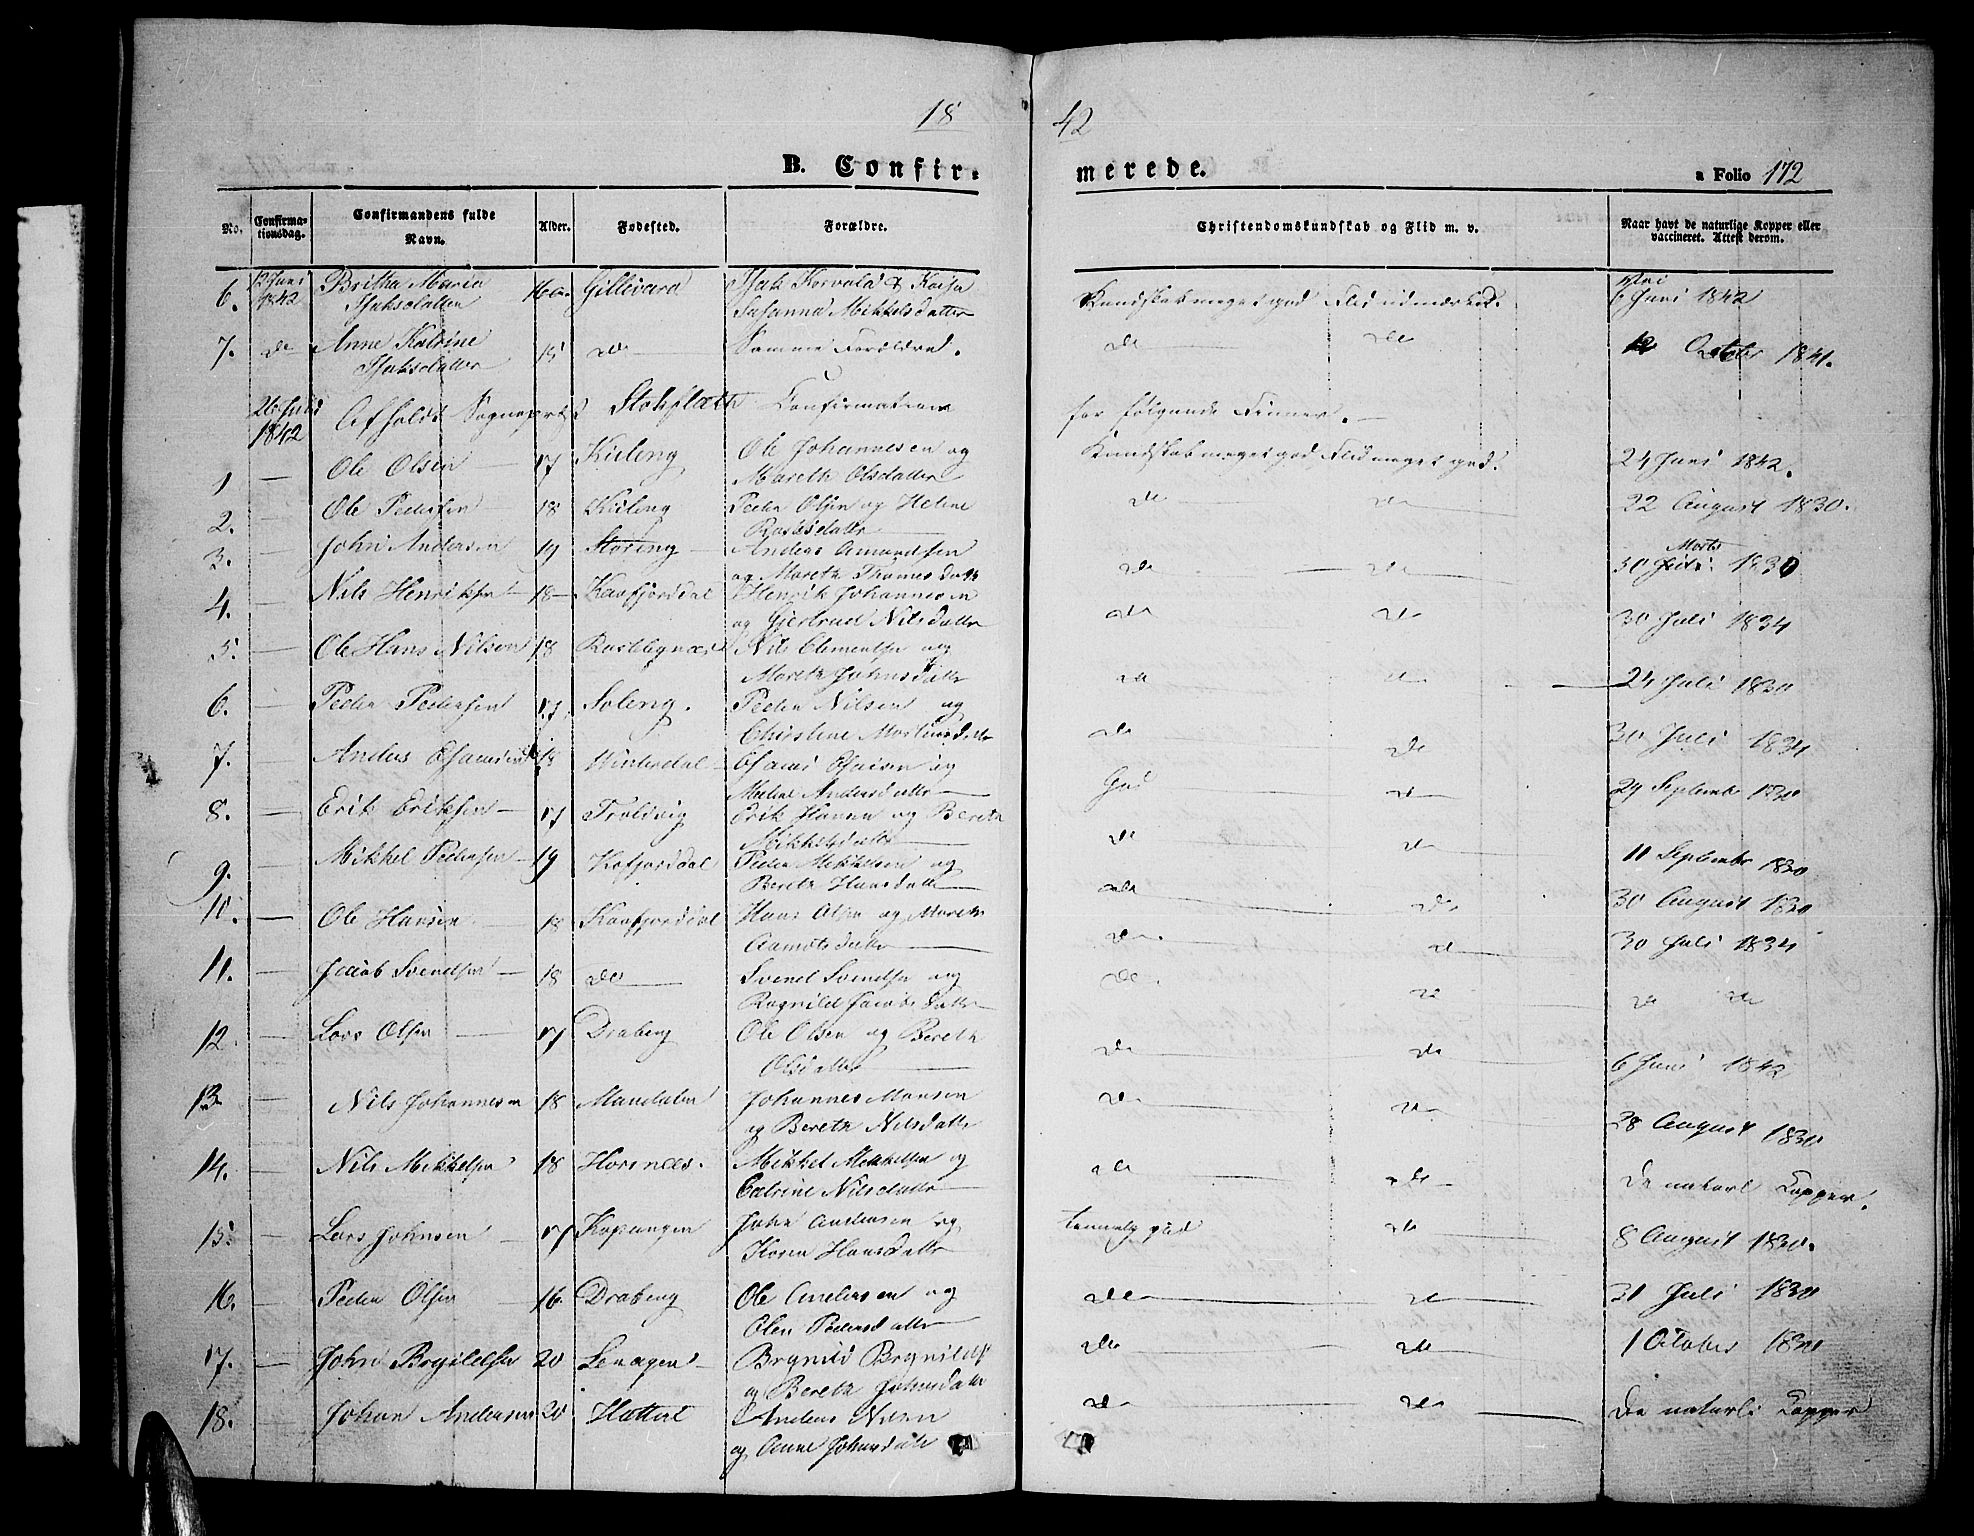 18 42
B. Confirmerede. a Folio 172
No. Confirmationsdag. Confirmandens fulde Navn. Alder. Fødested. Forældre. Christendomskundskab og Flid m. v. Naar havt de naturlige Kopper eller vaccineret. Attest derom.
6. 12 Juni 1842 Britha Maria Isaksdatter 16 Gillivara Isak & Kaisa Susanna Mikkelsdatter Kundskab meget god Flid udmærket. 6 Juni 1842
7. do Anne Katrine Isaksdatter 15 do Samme Forældre. do do October 1841.
26 Juli 1842 Afholdt Confirmation for følgende Finner.
1 — Ole Olsen 17 Kieleng Ole Johannesen og Mareth Olsdatter Kundskab meget god Flid meget god. 24 Juni 1842.
2. — Ole Pedersen 18 Kieleng Peder Olsen og Helene do do 22 August 1830.
3. — John Andersen 19 Storeng Anders Amundsen og Mareth Thomesdatter do do 30 Marts 1830
4. — Nils Henriksen 18 Kaafjorddal Henrik Johannesen og Gjertrud Nilsdatter do do 30 Juli 1834
5. — Ole Hans Nilsen 18 Nils Clementsen og Mareth Johnsdatter do do 24 Juli 1830
6. — Peder Pedersen 17 Soleng. Peder Nilsen og Christine do do 30 Juli 1834
7. — Anders Winterdal og Andersdatter God do 29 September
8. — Erik Eriksen 17 Troldvig Erik Hansen og Bereth Mikkelsdatter do do 11 September 1830
9. — Mikkel Pedersen 19 Kofjorddal Peder Mikkelsen og Bereth Hansdatter do do 30 August 1830
10. — Ole Hansen 18 Kaafjorddal Hans Olsen og Mareth do do 30 Juli 1834
11. — Jacob Svendsen 18 do Svend Svendsen og Ragnild Jacobsdatter do do do do
12. — Lars Olsen 17 Draberg Ole Olsen og Bereth Olsdatter do do 6 Juni 1842
13. — Nils Johannesen 18 Mandalen Johannes Monsen og Bereth Nilsdatter do do 28 August 1830
14. — Nils Mikkelsen 18 Horsnæs. Mikkel Mikkelsen og Catrine Nilsdatter do do De naturl Kopper.
15. — Lars Johnsen 17 Kopangen John Andersen og Karen Hansdatter temmelig god do 8 August 1830.
16. — Peder Olsen 16. Draberg Ole Andersen og Olen Pedersdatter do do 31 Juli 1830
17. — John 20 og Bereth Johnsdatter do do 1 October
18. — Johan Andersen 20 Anders og Anne Johnsdatter do do De naturli Kopper